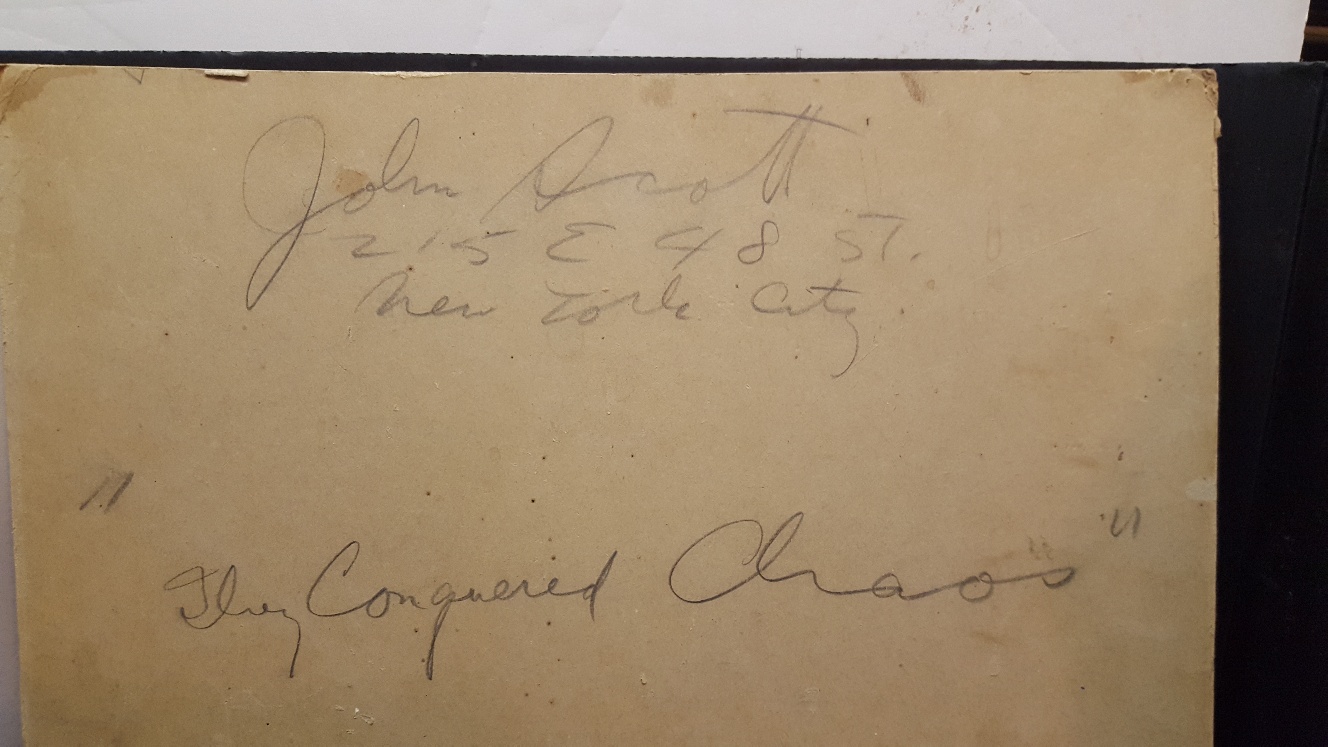 John Scott
215 E 48 ST.
New York City
"They Conquered Chaos"